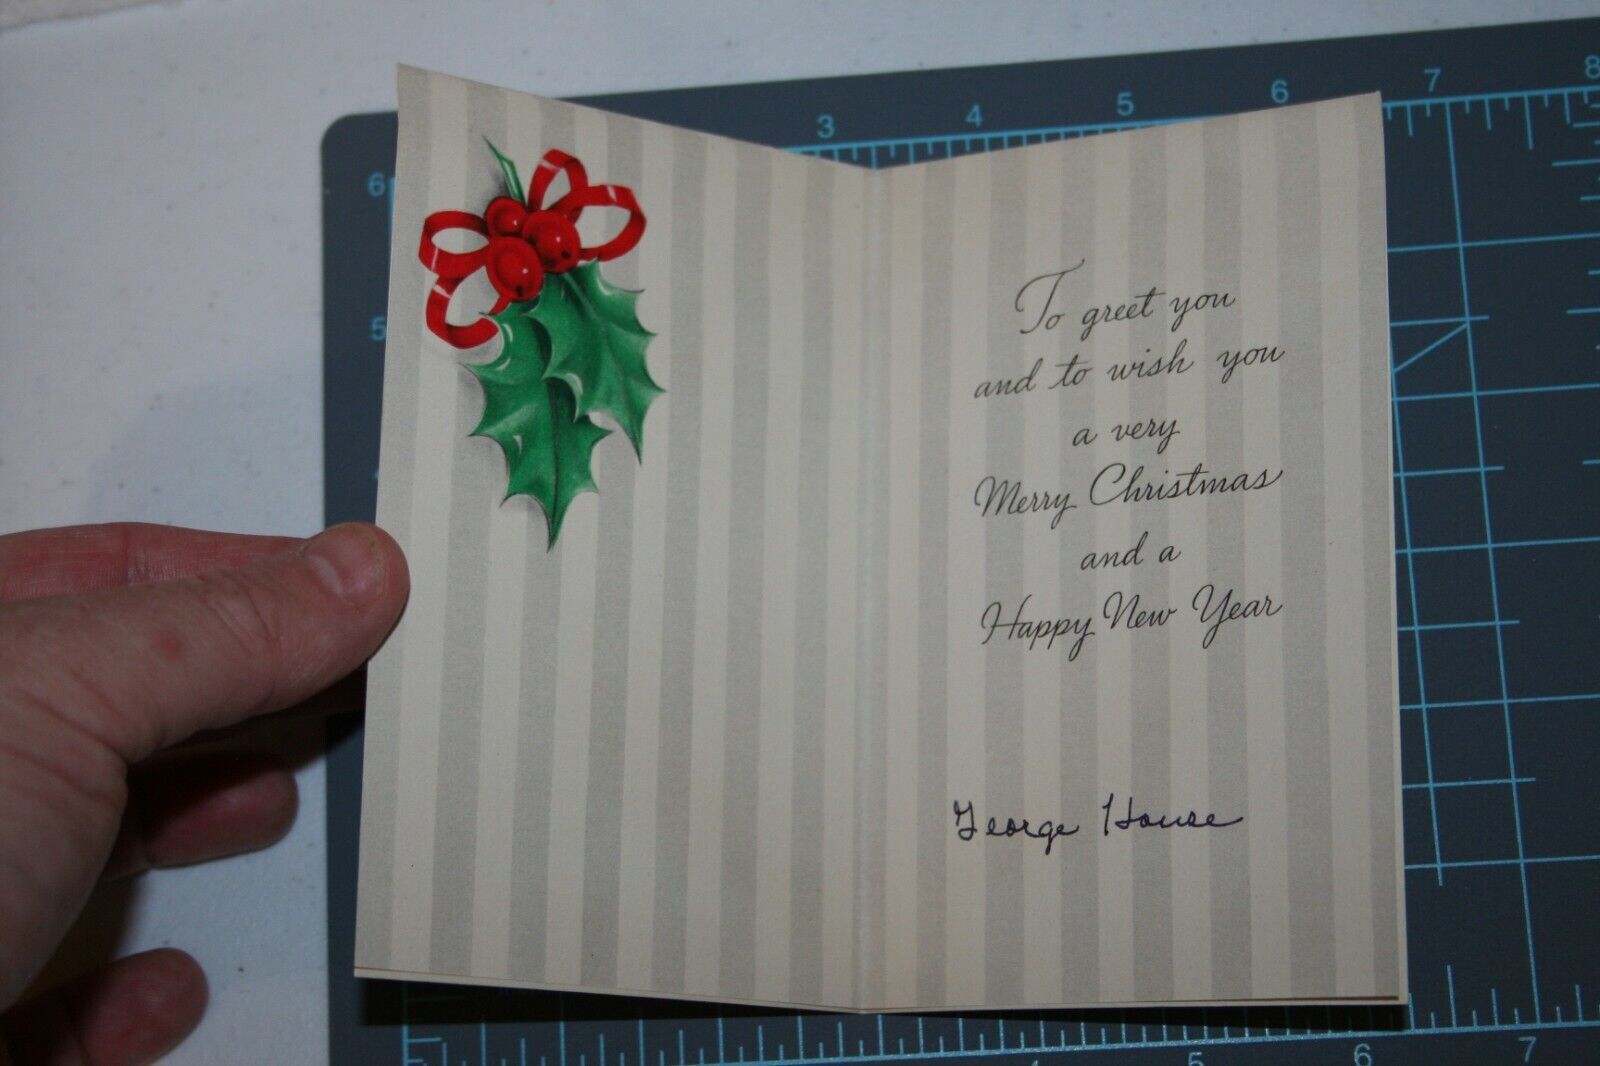 3 4 5 6 7 8
6
5
To greet you
and to wish you
a very
Merry Christmas
and a
Happy New Year
George House
5 6 7